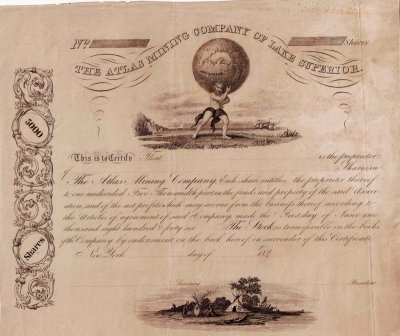 No. Shares
THE ATLAS MINING COMPANY OF LAKE SUPERIOR.
5000
This is to Certify that is the proprietor
of Shares in
The Atlas Mining Company. Each share entitles the proprietor thereof
to one undivided Five Thousandth part in the funds and property of the said Assoc-
iation, and of the net profits which may accrue from the business thereof according to
the Articles of agreement of said Company made the First day of June one
thousand eight hundred & forty six. The Stock is transferable on the books
of the Company by endorsement on the back hereof on surrender of this Certificate
Shares
New York day of 184
Secretary President